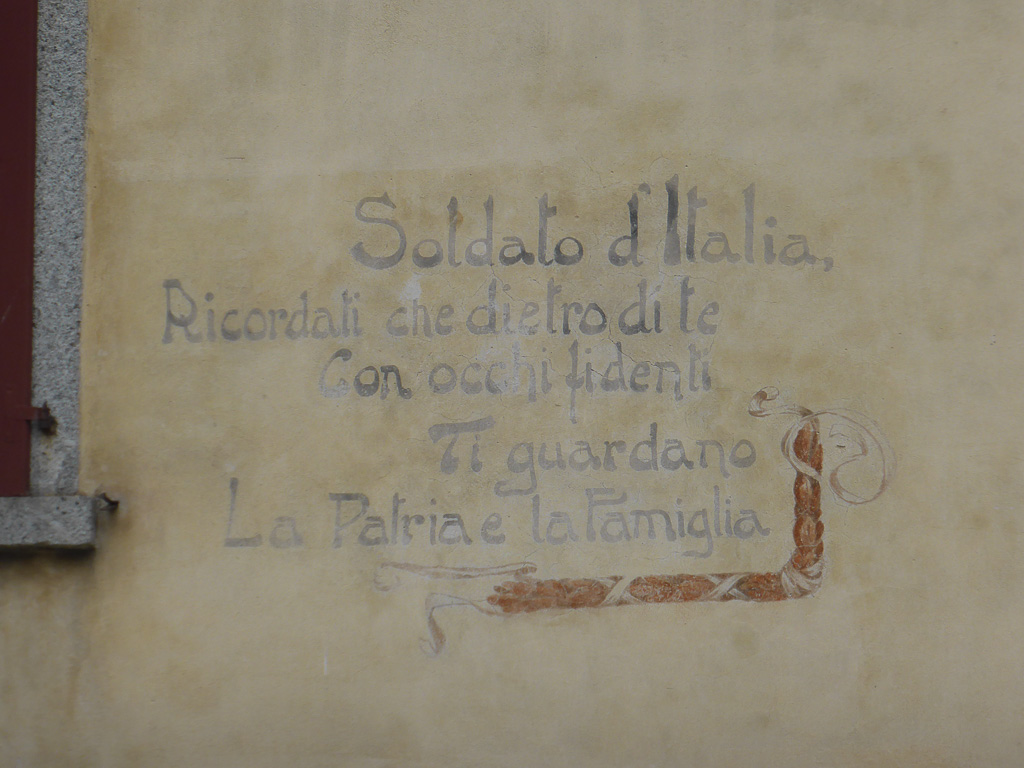 Soldato d'Italia,
Ricordati che dietro di te
Con occhi fidenti
Ti guardano
La Patria e la Famiglia